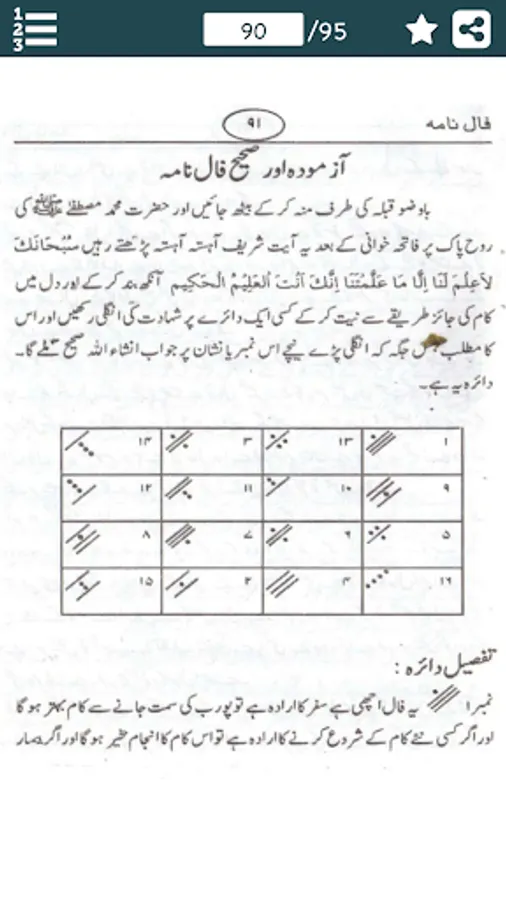 1
2
3
90 /95
فال نامہ ۹۱
آزمودہ اور صحیح فال نامہ
باوضو قبلہ کی طرف منہ کر کے بیٹھ جائیں اور حضرت محمد مصطفےٰ ﷺ کی
روح پاک پر فاتحہ خوانی کے بعد یہ آیت شریف آہستہ آہستہ پڑھتے رہیں سُبْحَانَكَ
لَاعِلْمَ لَنَا اِلَّا مَا عَلَّمْتَنَا اِنَّكَ اَنْتَ الْعَلِيْمُ الْحَكِيْم آنکھ بند کر کے اور دل میں
کام کی جائز طریقے سے نیت کر کے کسی ایک دائرے پر شہادت کی انگلی رکھیں اور اس
کا مطلب جس جگہ کہ انگلی پڑے نیچے اس نمبر یا نشان پر جواب انشاء اللہ صحیح ملے گا۔
دائرہ یہ ہے۔
۱ ۱۳ ۳ ۱۴
۹ ۱۰ ۱۱ ۱۲
۵ ۶ ۷ ۸
۱۶ ۴ ۲ ۱۵
تفصیل دائرہ :
نمبر ۱ یہ فال اچھی ہے سفر کا ارادہ ہے تو پورب کی سمت جانے سے کام بہتر ہو گا
اور اگر کسی نئے کام کے شروع کرنے کا ارادہ ہے تو اس کام کا انجام خیر ہو گا اور اگر بیمار